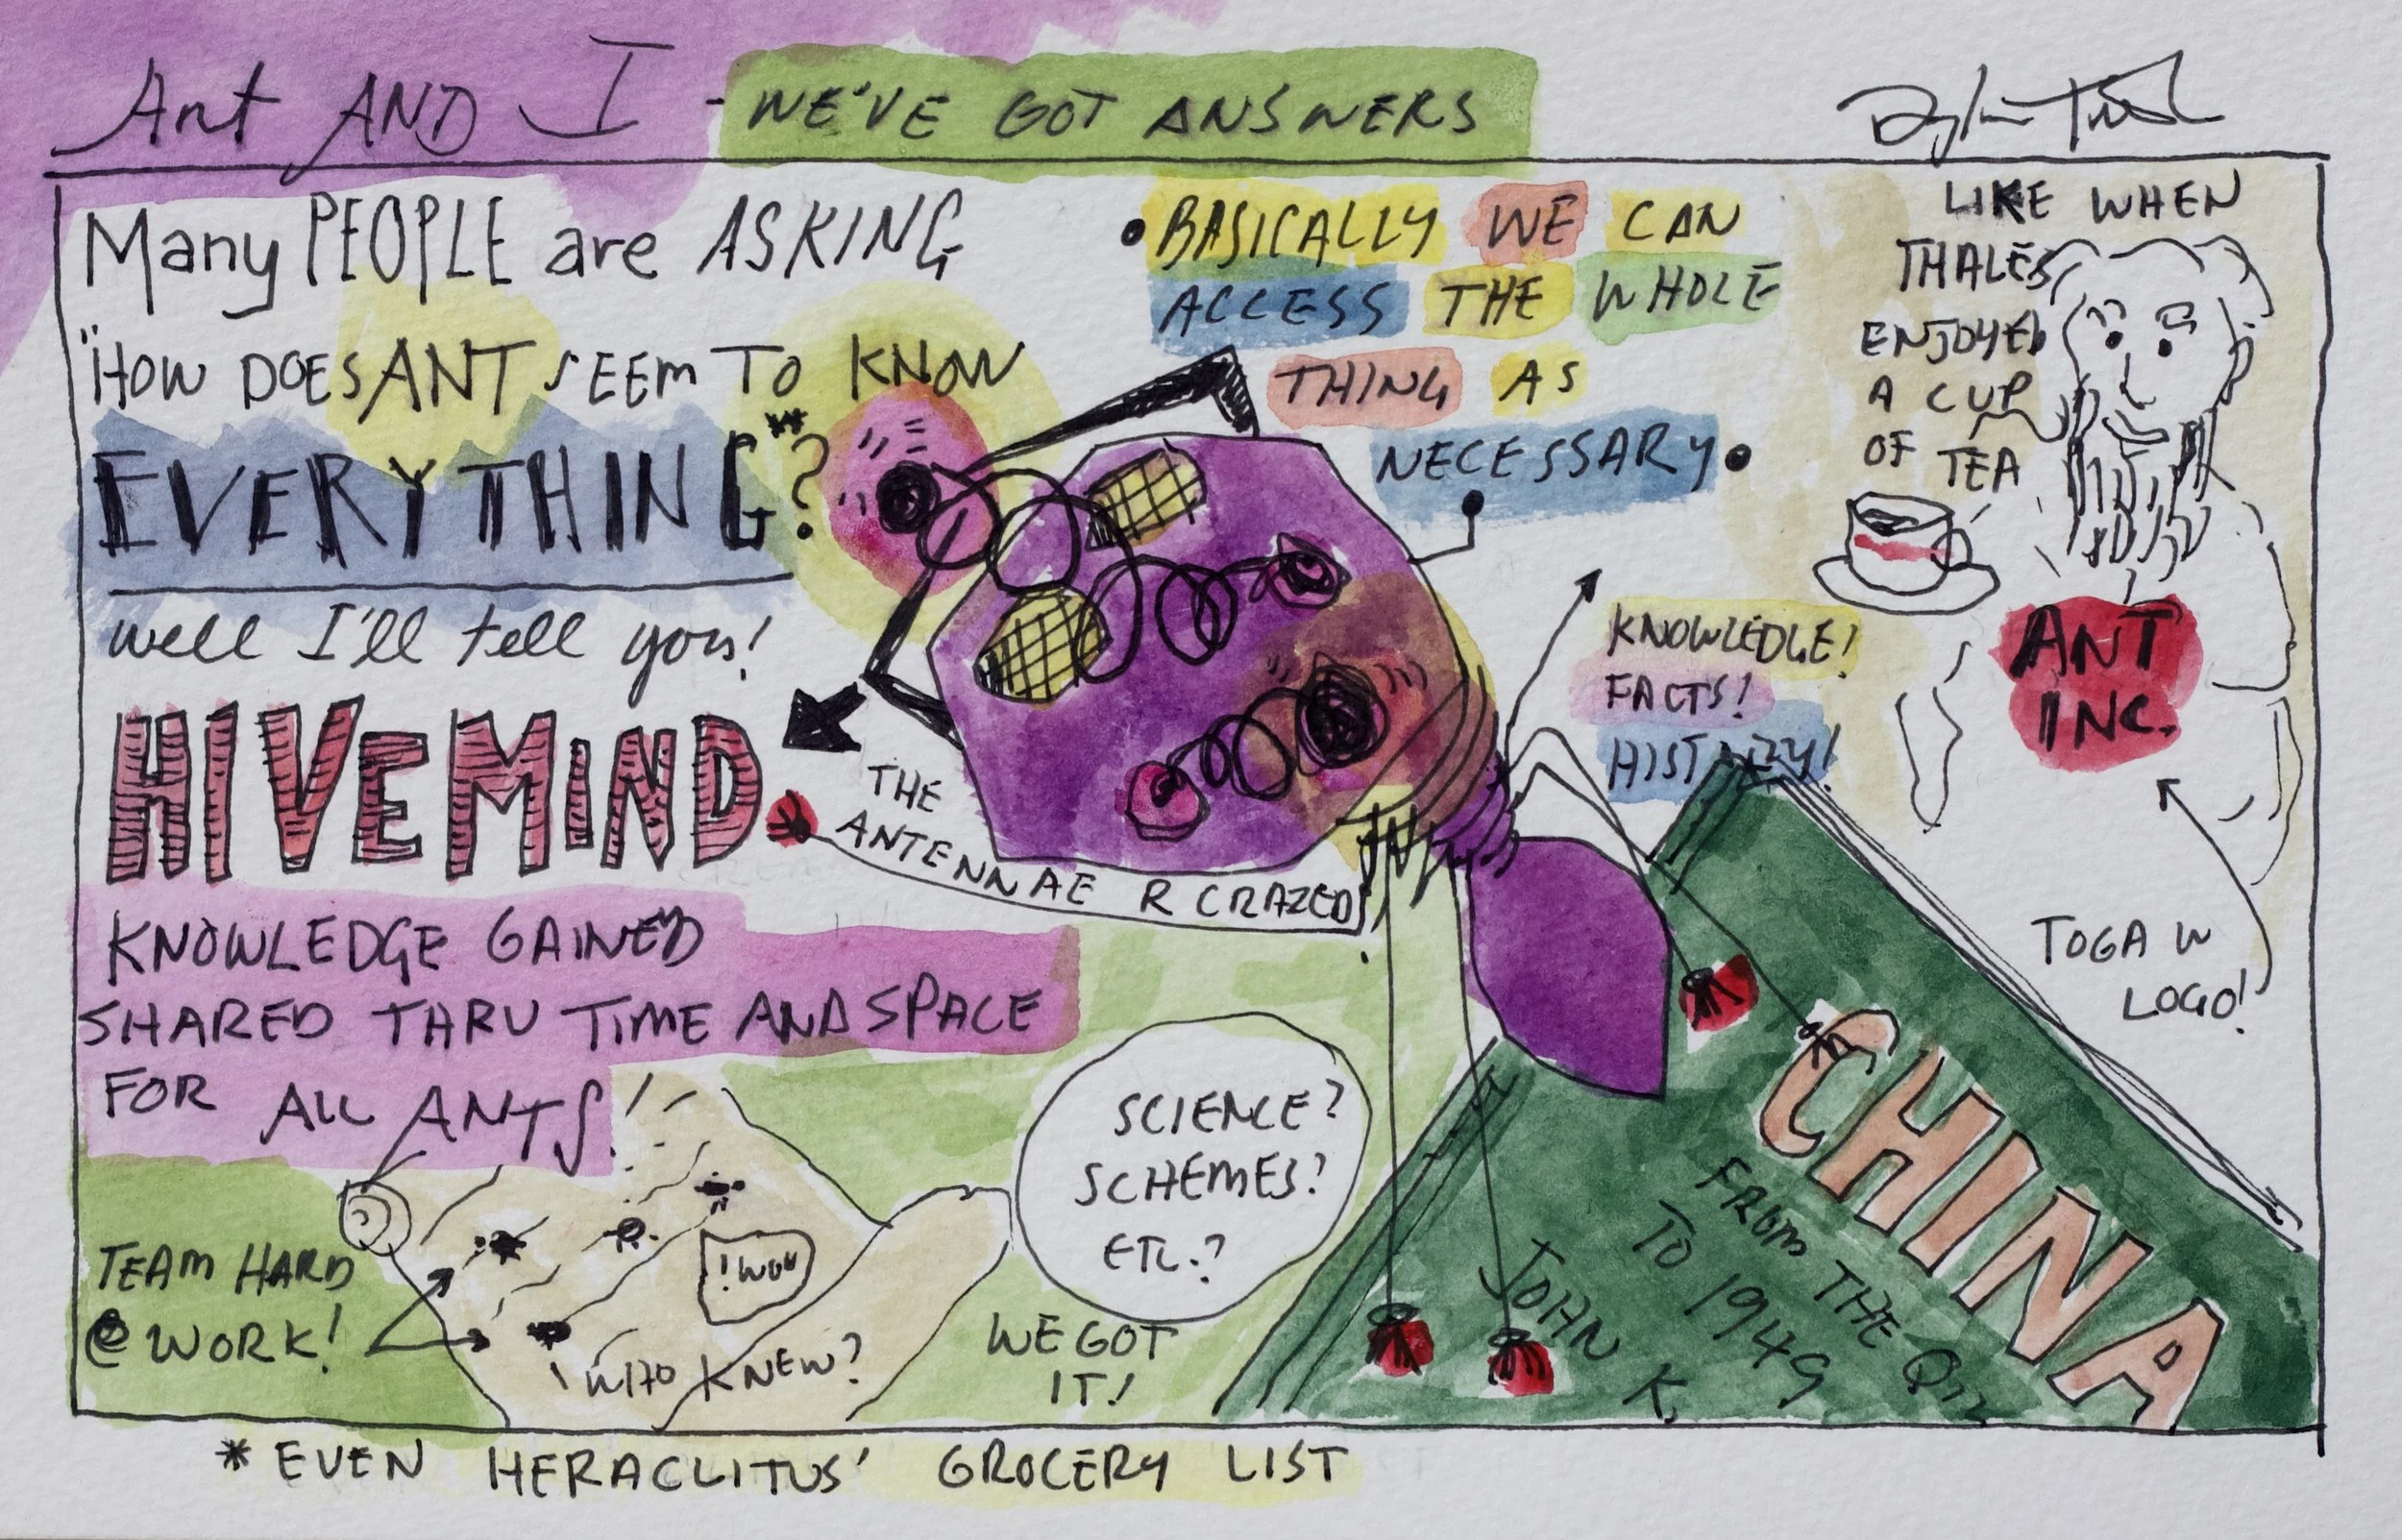 Ant AND I - WE'VE GOT ANSWERS
Many PEOPLE are ASKING
"HOW DOES ANT SEEM TO KNOW
EVERYTHING**?
well I'll tell you!
HIVEMIND
KNOWLEDGE GAINED
SHARED THRU TIME AND SPACE
FOR ALL ANTS!
TEAM HARD
@ WORK!
! WOW
WHO KNEW?
THE
ANTENNAE R CRAZED!
• BASICALLY WE CAN
ACCESS THE WHOLE
THING AS
NECESSARY •
LIKE WHEN
THALES
ENJOYED
A CUP
OF TEA
KNOWLEDGE!
FACTS!
HISTORY!
ANT
INC.
TOGA W
LOGO!
SCIENCE?
SCHEMES?
ETC.?
WE GOT
IT!
CHINA
FROM THE
TO 1949
JOHN K.
* EVEN HERACLITUS' GROCERY LIST